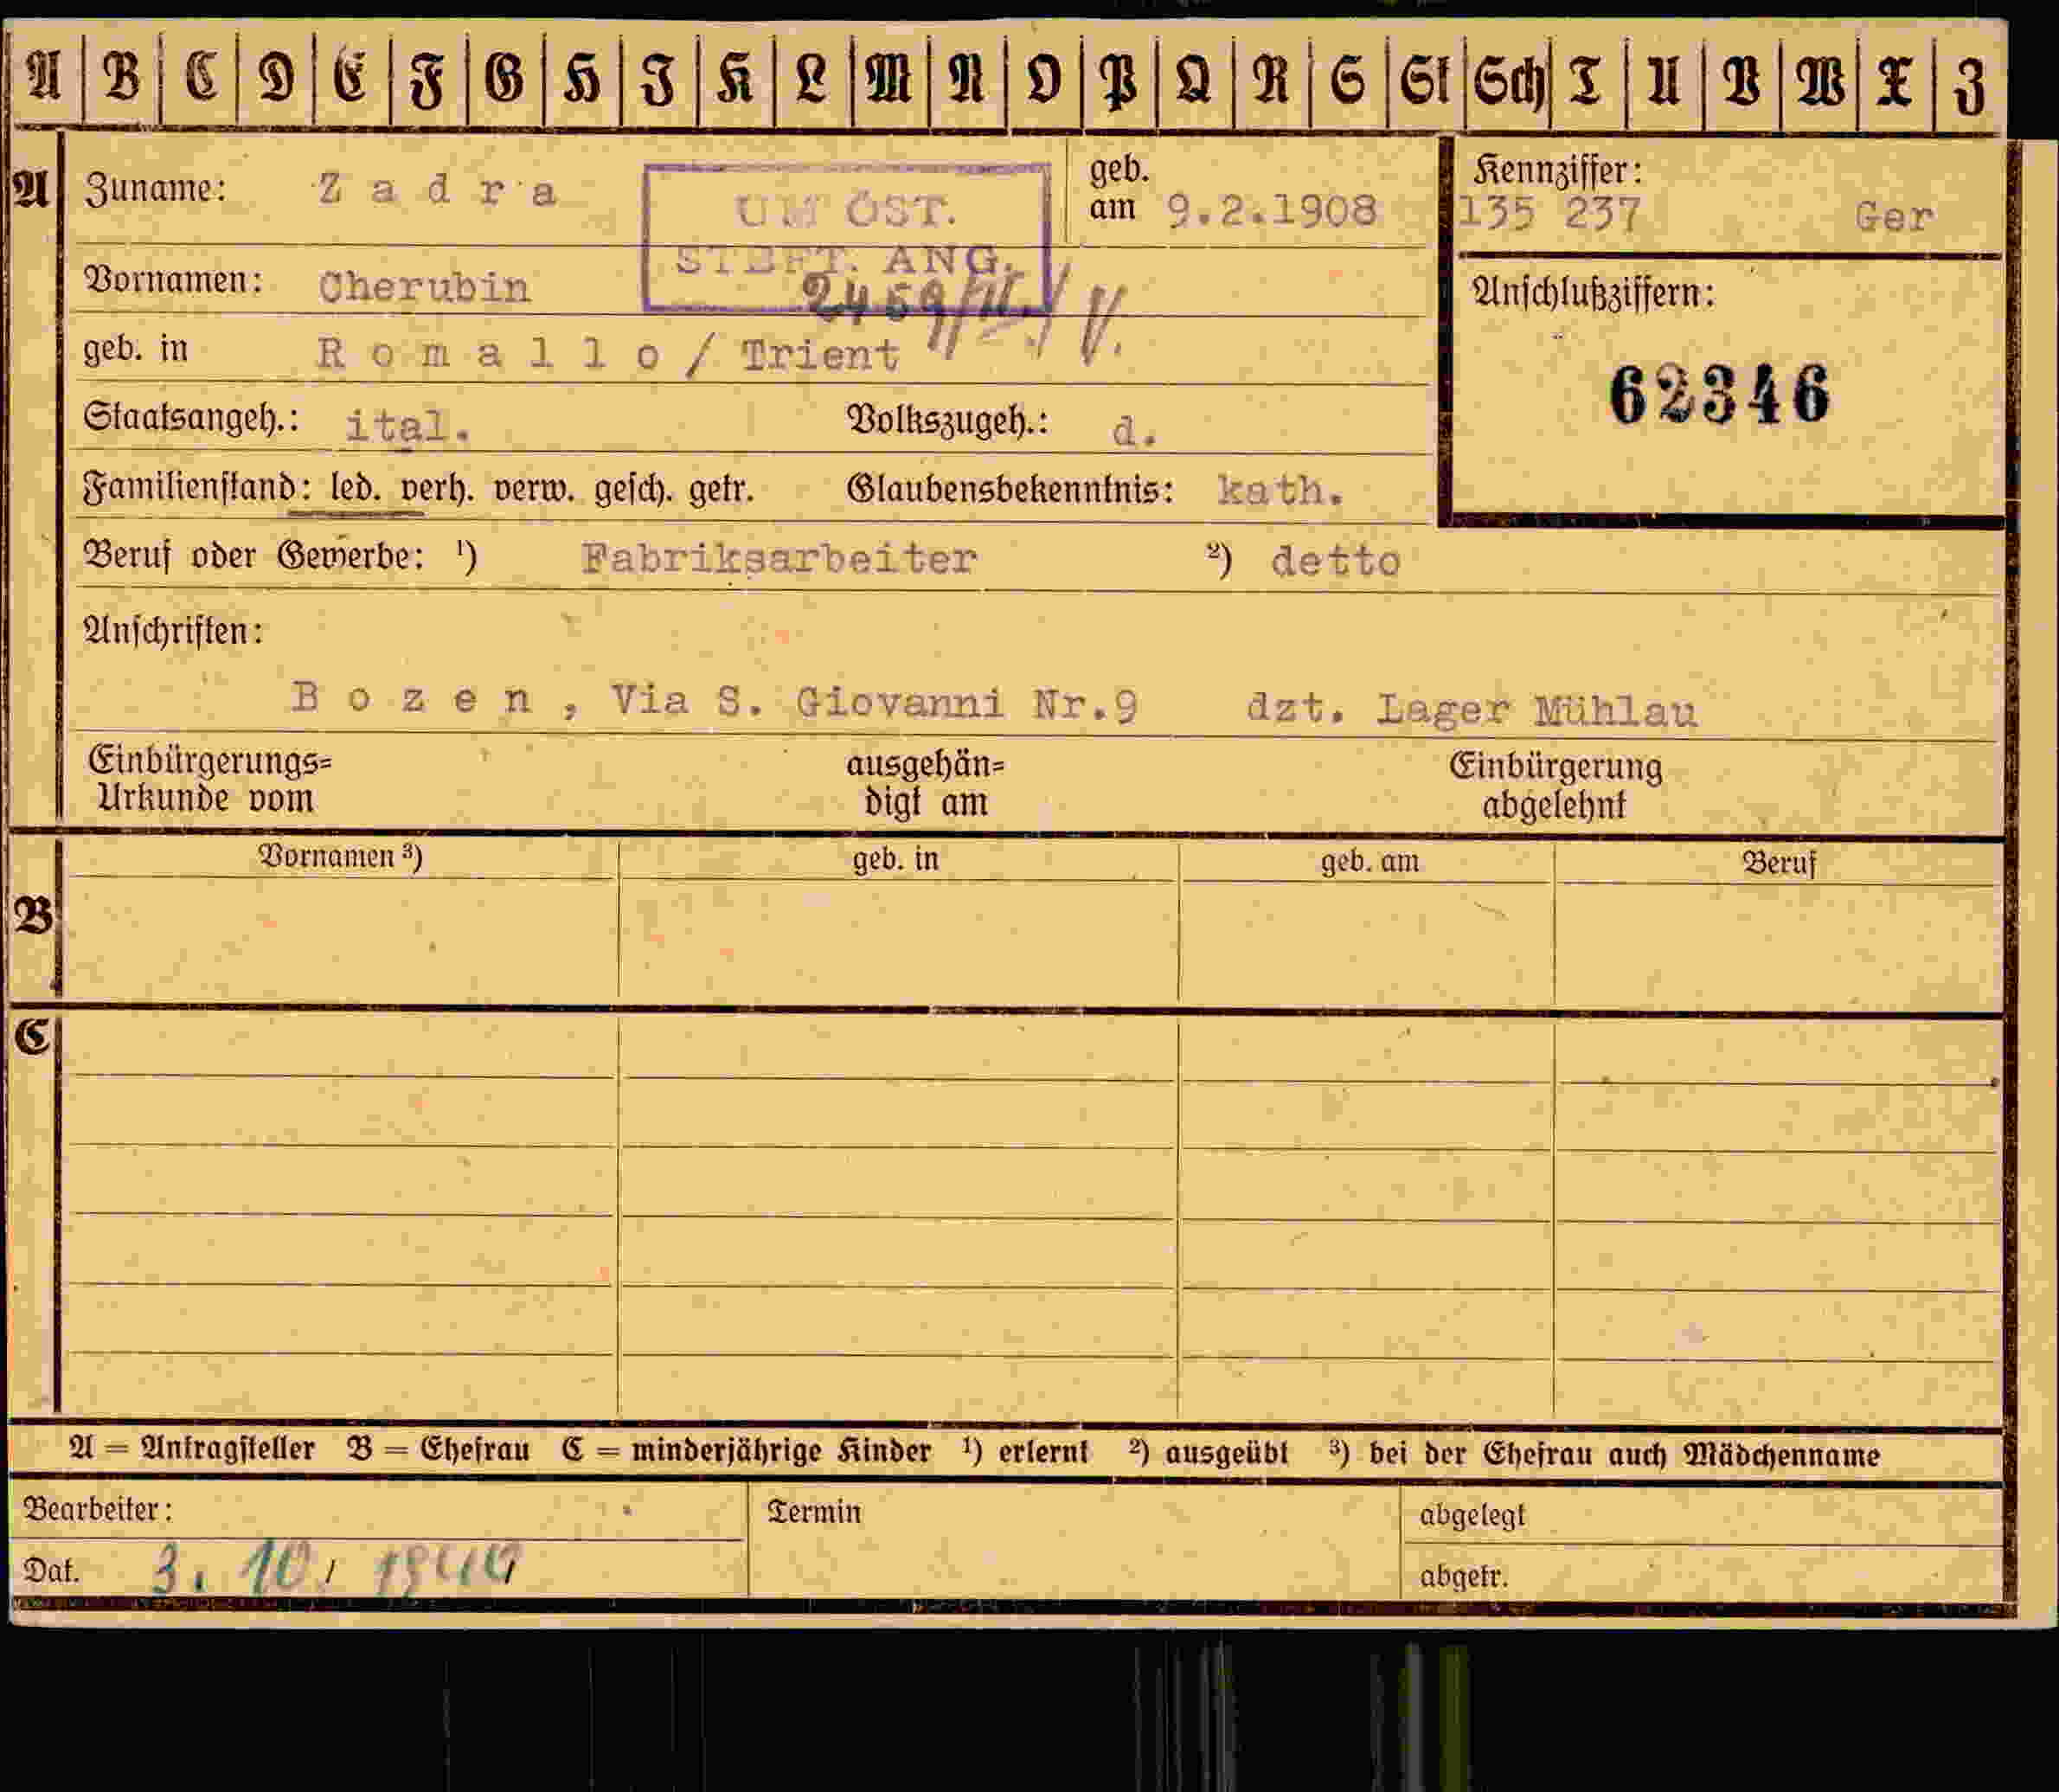 A B C D E F G H I K L M N O P Q R S St Sch T U V W X Z
A Zuname: Zadra geb. am 9.2.1908 Kennziffer: 135 237 Ger
UM ÖST.
STBFT. ANG.
Vornamen: Cherubin Anschlußziffern:
geb. in Romallo / Trient
62346
Staatsangeh.: ital. Volkszugeh.: d.
Familienstand: led. verh. verw. gesch. getr. Glaubensbekenntnis: kath.
Beruf oder Gewerbe: ¹) Fabriksarbeiter ²) detto
Anschriften:
Bozen, Via S. Giovanni Nr.9 dzt. Lager Mühlau
Einbürgerungs= Urkunde vom ausgehän= digt am Einbürgerung abgelehnt
Vornamen ³) geb. in geb. am Beruf
B
C
A = Antragsteller B = Ehefrau C = minderjährige Kinder ¹) erlernt ²) ausgeübt ³) bei der Ehefrau auch Mädchenname
Bearbeiter: Termin abgelegt
Dat. 3. 10/ 1940 abgetr.